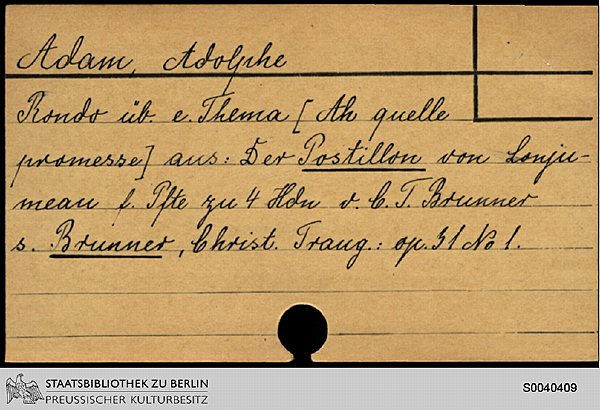 Adam, Adolphe
Rondo üb. e. Thema [Ah quelle
promesse] aus: Der Postillon von Lonju-
meau f. Pfte zu 4 Hdn v. C. T. Brunner
s. Brunner, Christ. Traug.: op. 31 No 1.
STAATSBIBLIOTHEK ZU BERLIN
PREUSSISCHER KULTURBESITZ
S0040409